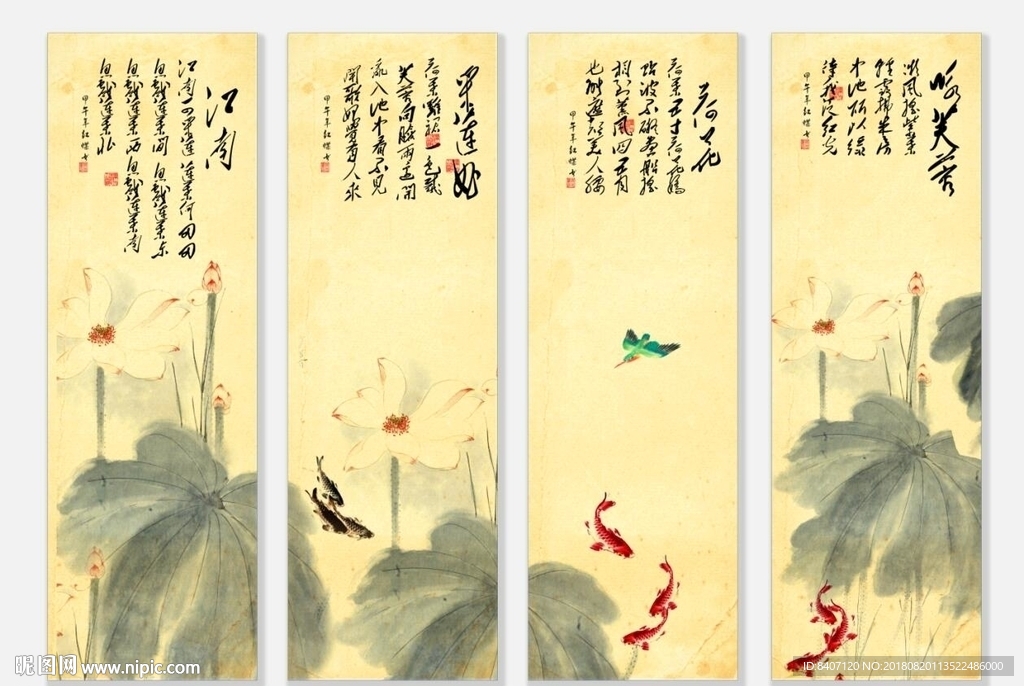 江南
江南可采莲 莲叶何田田
鱼戏莲叶间 鱼戏莲叶东
鱼戏莲叶西 鱼戏莲叶南
鱼戏莲叶北
甲午年红蝶书
采莲曲
荷叶罗裙一色裁
芙蓉向脸两边开
乱入池中看不见
闻歌始觉有人来
甲午年红蝶书
荷花
荷叶五寸荷花娇
贴波不碍画船摇
相到薰风四五月
也能遮却美人腰
甲午年红蝶书
咏芙蓉
微风摇紫叶
轻露拂朱房
中池所以绿
待我泛红光
甲午年红蝶书
昵图网 www.nipic.com
ID:8407120 NO:20180820113522486000